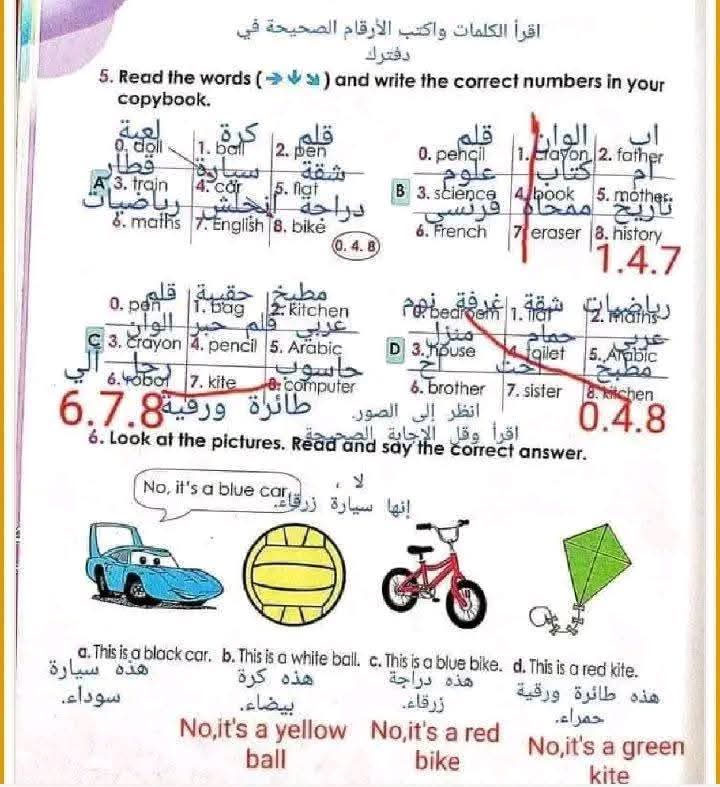 اقرأ الكلمات واكتب الأرقام الصحيحة في
دفترك
5. Read the words (→ ↓ ↘) and write the correct numbers in your
copybook.
لعبة كرة قلم
0. doll 1. ball 2. pen
قطار سيارة شقة
A 3. train 4. car 5. flat
رياضيات انجلش دراجة
6. maths 7. English 8. bike
0. 4. 8
قلم الوان اب
0. pencil 1. crayon 2. father
علوم كتاب ام
B 3. science 4. book 5. mother
فرنسي ممحاة تاريخ
6. French 7. eraser 8. history
1.4.7
قلم حقيبة مطبخ
0. pen 1. bag 2. kitchen
الوان قلم حبر عربي
C 3. crayon 4. pencil 5. Arabic
رجل الي حاسوب
6. robot 7. kite 8. computer
طائرة ورقية
6.7.8
غرفة نوم شقة رياضيات
0. bedroom 1. flat 2. maths
منزل حمام عربي
D 3. house 4. toilet 5. Arabic
اخ اخت مطبخ
6. brother 7. sister 8. kitchen
0.4.8
انظر إلى الصور
اقرأ وقل الإجابة الصحيحة
6. Look at the pictures. Read and say the correct answer.
No, it's a blue car.
لا ،
إنها سيارة زرقاء.
a. This is a black car. b. This is a white ball. c. This is a blue bike. d. This is a red kite.
هذه سيارة
سوداء.
هذه كرة
بيضاء.
هذه دراجة
زرقاء.
هذه طائرة ورقية
حمراء.
No,it's a yellow
ball
No,it's a red
bike
No,it's a green
kite